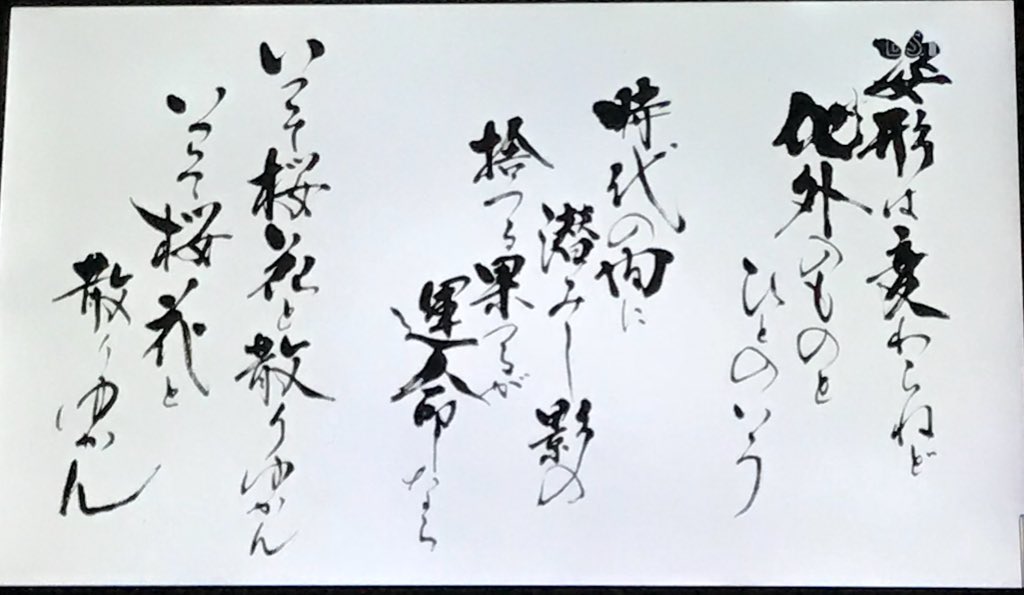 姿形は変わらねど
化外のものと
ひとのいう
時代の間に
潜みし影の
捨つる果つるが
運命なら
いっそ桜花と散りゆかん
いっそ桜花と
散りゆかん